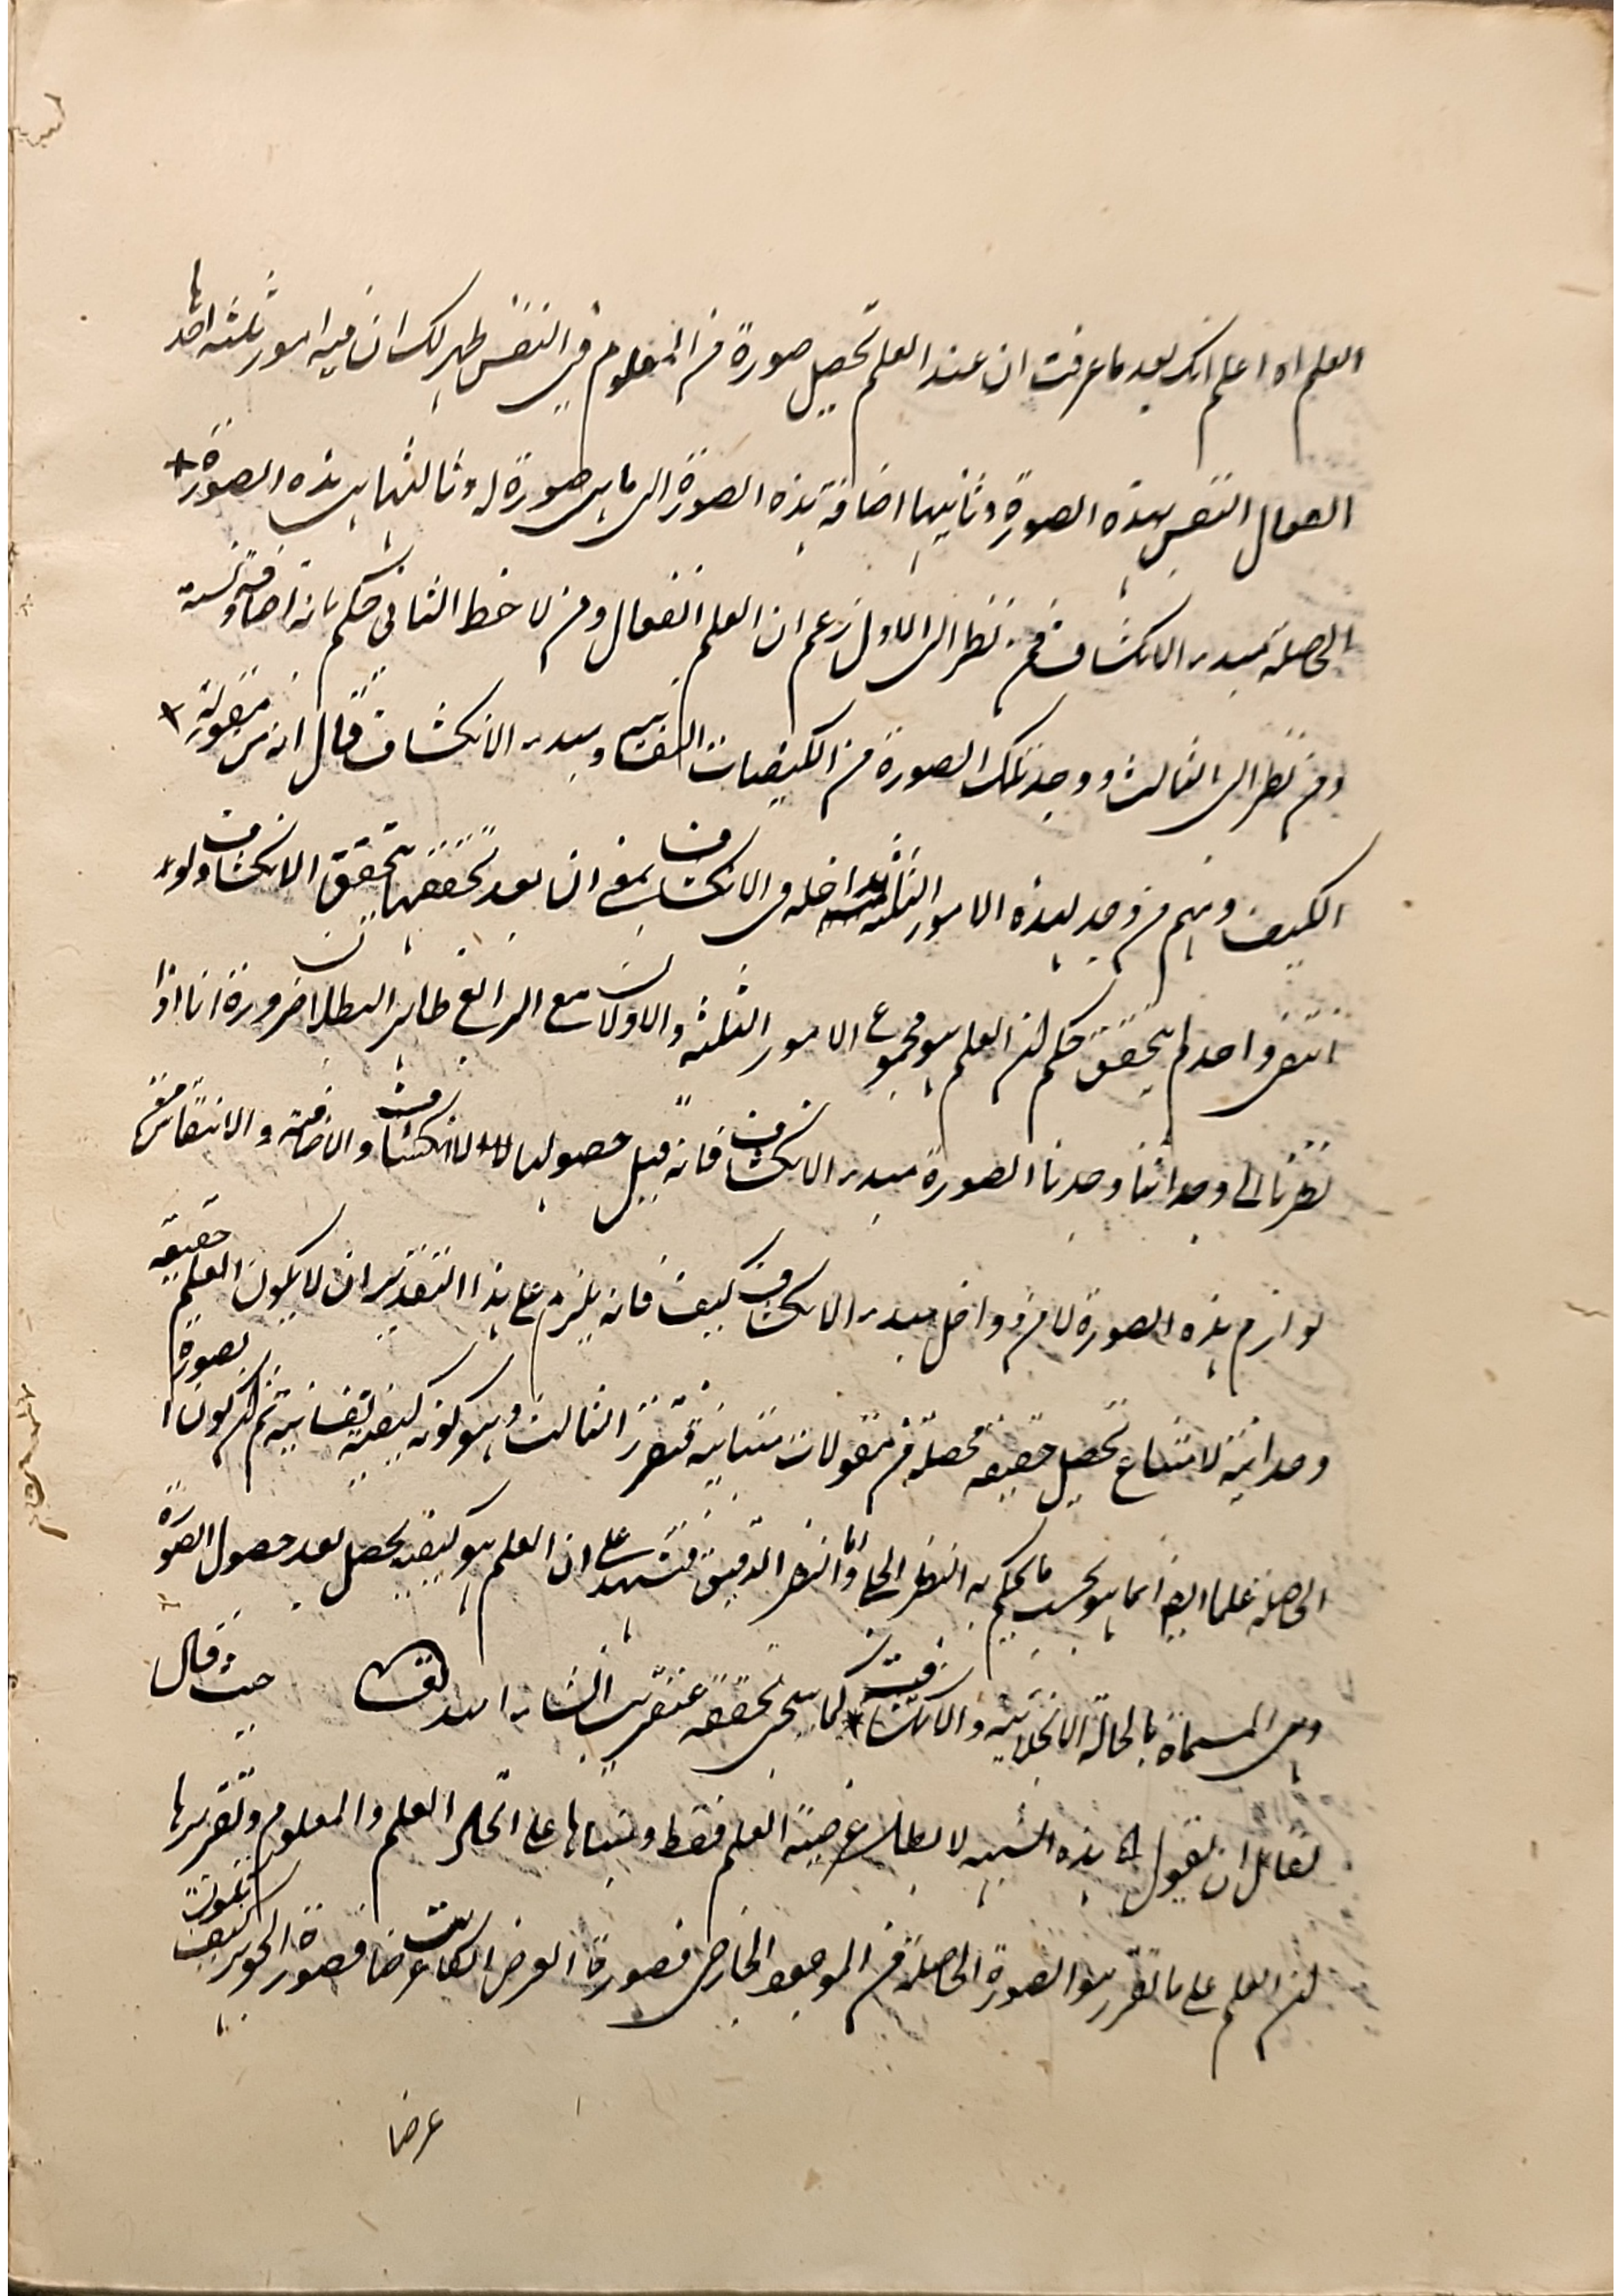 العلم اه اعلم انك بعد ما عرفت ان عند العلم تحصل صورة من المعلوم في النفس ظهر لك ان فيه امور ثلثه احدها
انفعال النفس بهذه الصورة وثانيها اضافة هذه الصورة الى ما هى صورة له وثالثها هى هذه الصورة
الحاصلة مبدء الانكشاف فمن نظر الى الاول زعم ان العلم انفعال ومن لاحظ الثانى حكم بانه اضافة ونسبة
ومن نظر الى الثالث ووجد تلك الصورة من الكيفيات النفسانية ومبدء الانكشاف قال انه من مقولة
الكيف ومنهم من وجد لهذه الامور الثلثة مداخله فى الانكشاف بمعنى ان بعد تحققها يتحقق الانكشاف ولو
انتفى واحد لم يتحقق حكم ان العلم هو مجموع الامور الثلثة والاولان مع الرابع ظاهر البطلان ضرورة انا اذا
نظرنا الى وجداننا وجدنا الصورة مبدء الانكشاف فانه قبل حصولها لا انكشاف والاضافة والانتقاش من
لوازم هذه الصورة لا من دواخل مبدء الانكشاف كيف فانه يلزم على هذا التقدير ان لا يكون العلم حقيقة
وحدانية لامتناع تحصل حقيقة محصلة من مقولات متباينة فتقرر الثالث وهو كونه كيفية نفسانية ثم ان كون الصورة
الحاصلة علما ايضا انما هو بحسب ما يحكم به النظر الجلى واما النظر الدقيق فيشهد على ان العلم هو كيفية تحصل بعد حصول الصورة
وهى المسماة بالحالة الانجلائية والانكشافية كما سيجئ تحقيقه عنقريب انشاء الله تعالى حيث قال
لقائل ان يقول اه هذه الشبهة لابطال عرضية العلم فقط ومبناها على اتحاد العلم والمعلوم وتقريرها
ان العلم على ما تقرر هو الصورة الحاصلة من الموجود الخارجى فصورة العرض كانت عرضا فصورة الجوهر كيف تكون
عرضا